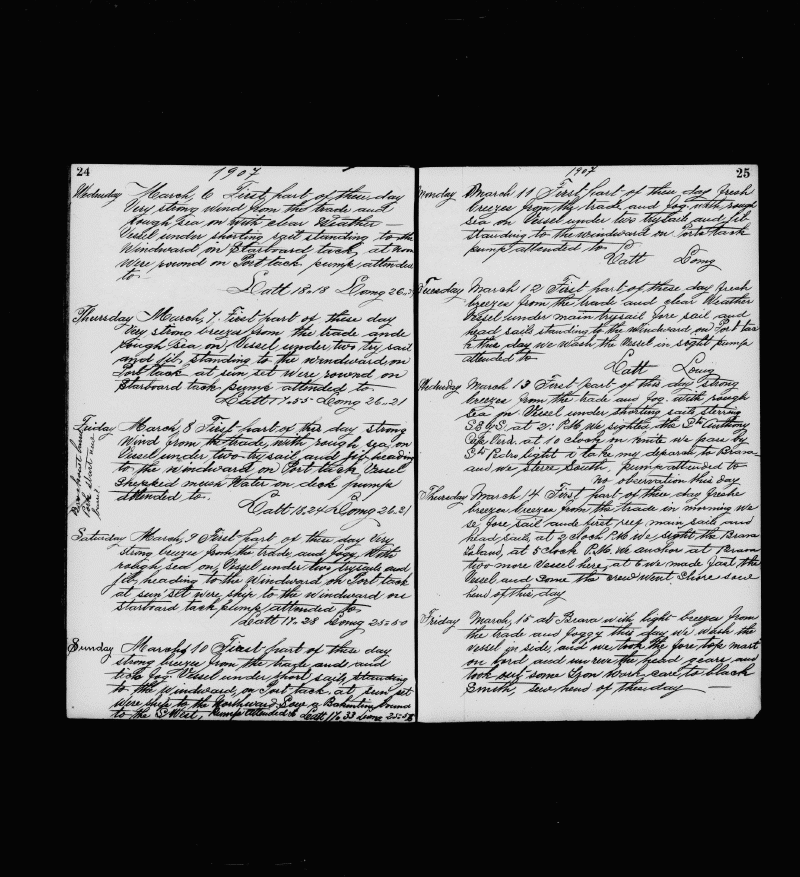 24
1907
Wednesday March, 6 First part of these day
Very strong wind from the trade and
rough sea on with clear Weather —
Vessel under shorting sail standing to the
Windward on Starboard tack, at noon
Were round on Port tack pump, attended
to
Latt 18.18 Long 26
Thursday March, 7 First part of these day
Very strong breeze from the trade ande
rough sea on, Vessel under two, try sail
and jib, standing to the windward on
Port tack at sun set were round on
Starboard tack pump attended to
Latt 17.55 Long 26.21
Friday March, 8 First part of this day strong
Wind from the trade, with rough sea, on
Vessel under two try sail, and jib heading
to the windward on Port tack Vessel
Shepped much Water on deck pump
attended to.
Latt 18.24 Long 26.21
Saturday March, 9 First part of these day Very
strong breeze from the trade, and foog. With
rough, sea on, Vessel under two trysails and
jib, heading to the Windward on Port tack
at sun set were ship to the windward on
Starboard tack pump, attended to
Latt 17.28 Long 25.50
Sunday March, 10 First part of these day
strong breeze from the trade ande and
fog. Vessel under short sails, standing
to the windward, on Port tack, at sun set
were ship to the Northward Saw a bound
to the S West, Pump attended to Latt 16 33 Long 25.58
1907
25
Monday March 11 First part of these day fresh
breeze from the trade, and fog, with rough
sea on Vessel under two trysails and jib
standing to the windward on Porte tack
pump attended to
Latt Long
Tuesday March 12 First part of these day fresh
breeze from the trade and clear Weather
Vessel under main trysail fore sail and
head sails standing to the windward on Port tac
k this day we wash the Vessel in sight pump
attended to
Latt Long
Wednesday March 13 First part of this day strong
breeze from the trade and fog. with rough
sea on Vessel under shorting sails sterring
at 2. P.M. We sighted the St Anthony
Cape Verd. at 10 clook on route we pass by
light i take my deparen to Brava
and we sterre South, pump attended to
no observation this day
Thursday March 14 First part of these day freshe
breeze breeze from the trade in morning we
se, fore sail and first reef main sails and
head sails, at 2 clock P.M. we sight the Brava
Island, at 5 clock P.M. we anchor at Brava
two more Vessel here, at 6 we made fast the
Vessel and some the crew went Shore some
hend of this day
Friday March, 15 at Brava with light breeze from
the trade and foggy this day we wash the
vessel in side, and we took the fore, top mast
on bord and the head gears and
took out some Iron Work care to black
Smith, hend of this day —